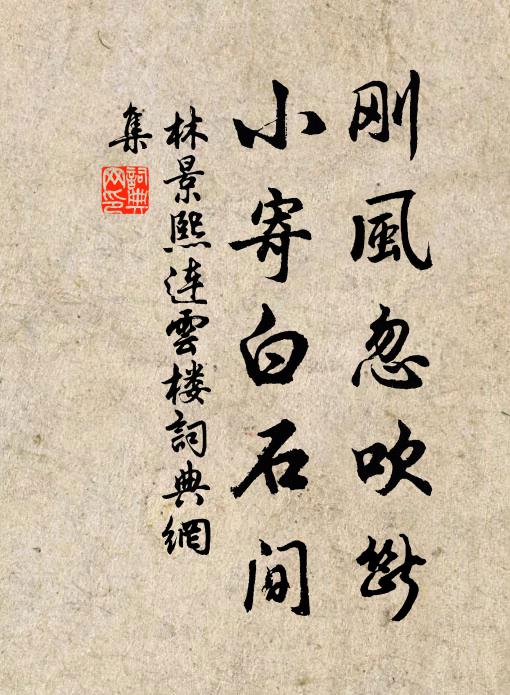 刚風忽吹斷
小寄白石間
林景熙連雲楼詞典網
集
詞典
网印